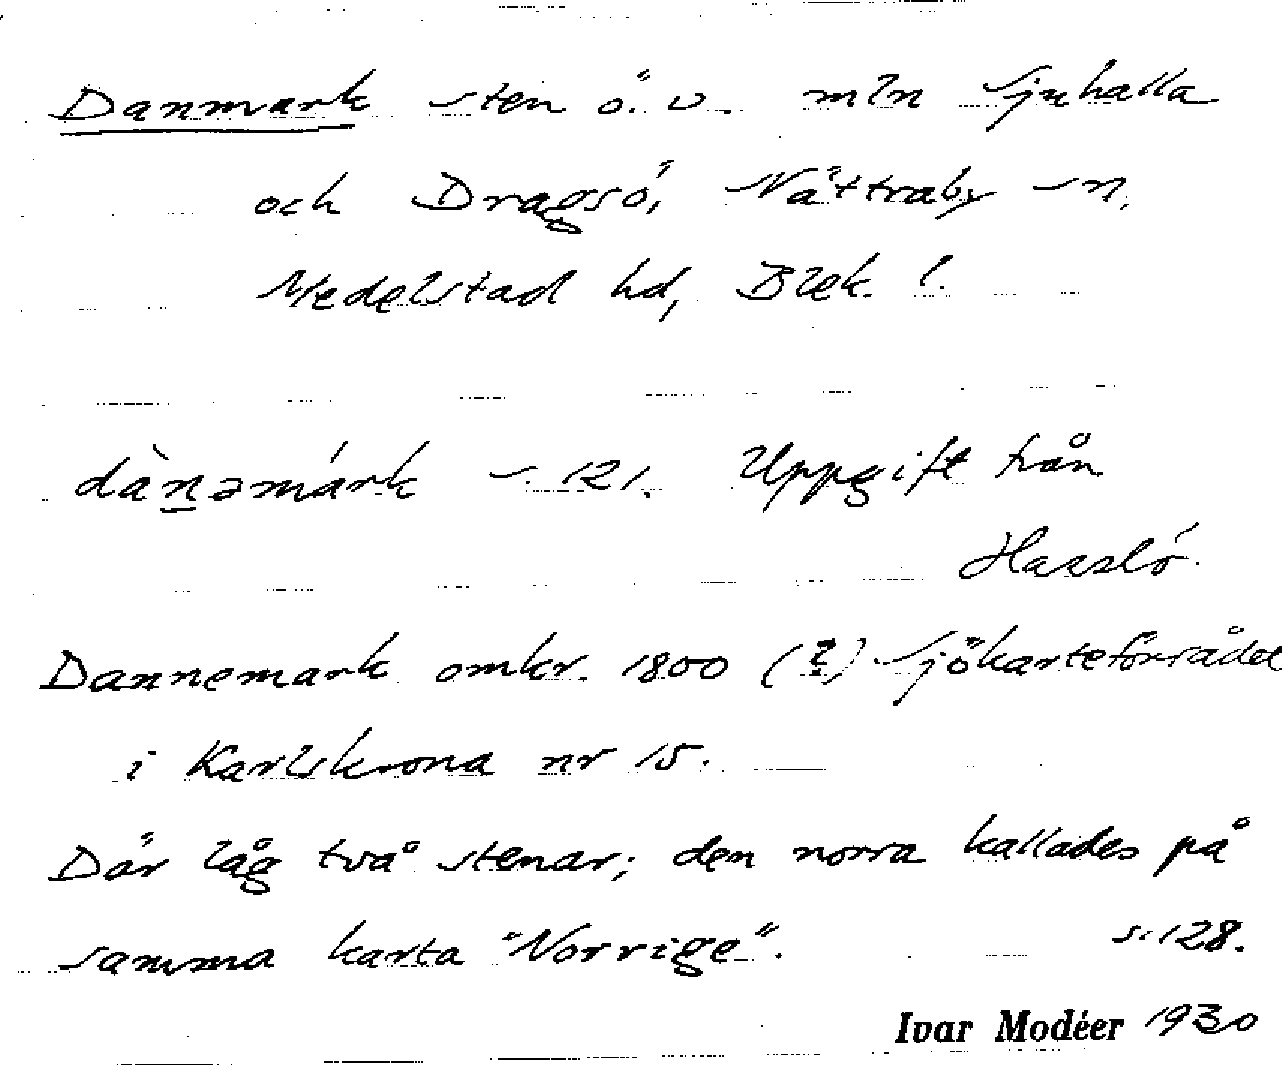 Danmark sten ö. v. mln Sjuhalla
och Dragsö, Nättraby sn.
Medelstad hd, Blek. l.
dànəmárk s. 121. Uppgift från
Hasslö.
Dannemark omkr. 1800 (?) Sjökarteförrådet
i Karlskrona nr 15.
Där låg två stenar; den norra kallades på
samma karta "Norrige". s. 128.
Ivar Modéer 1930